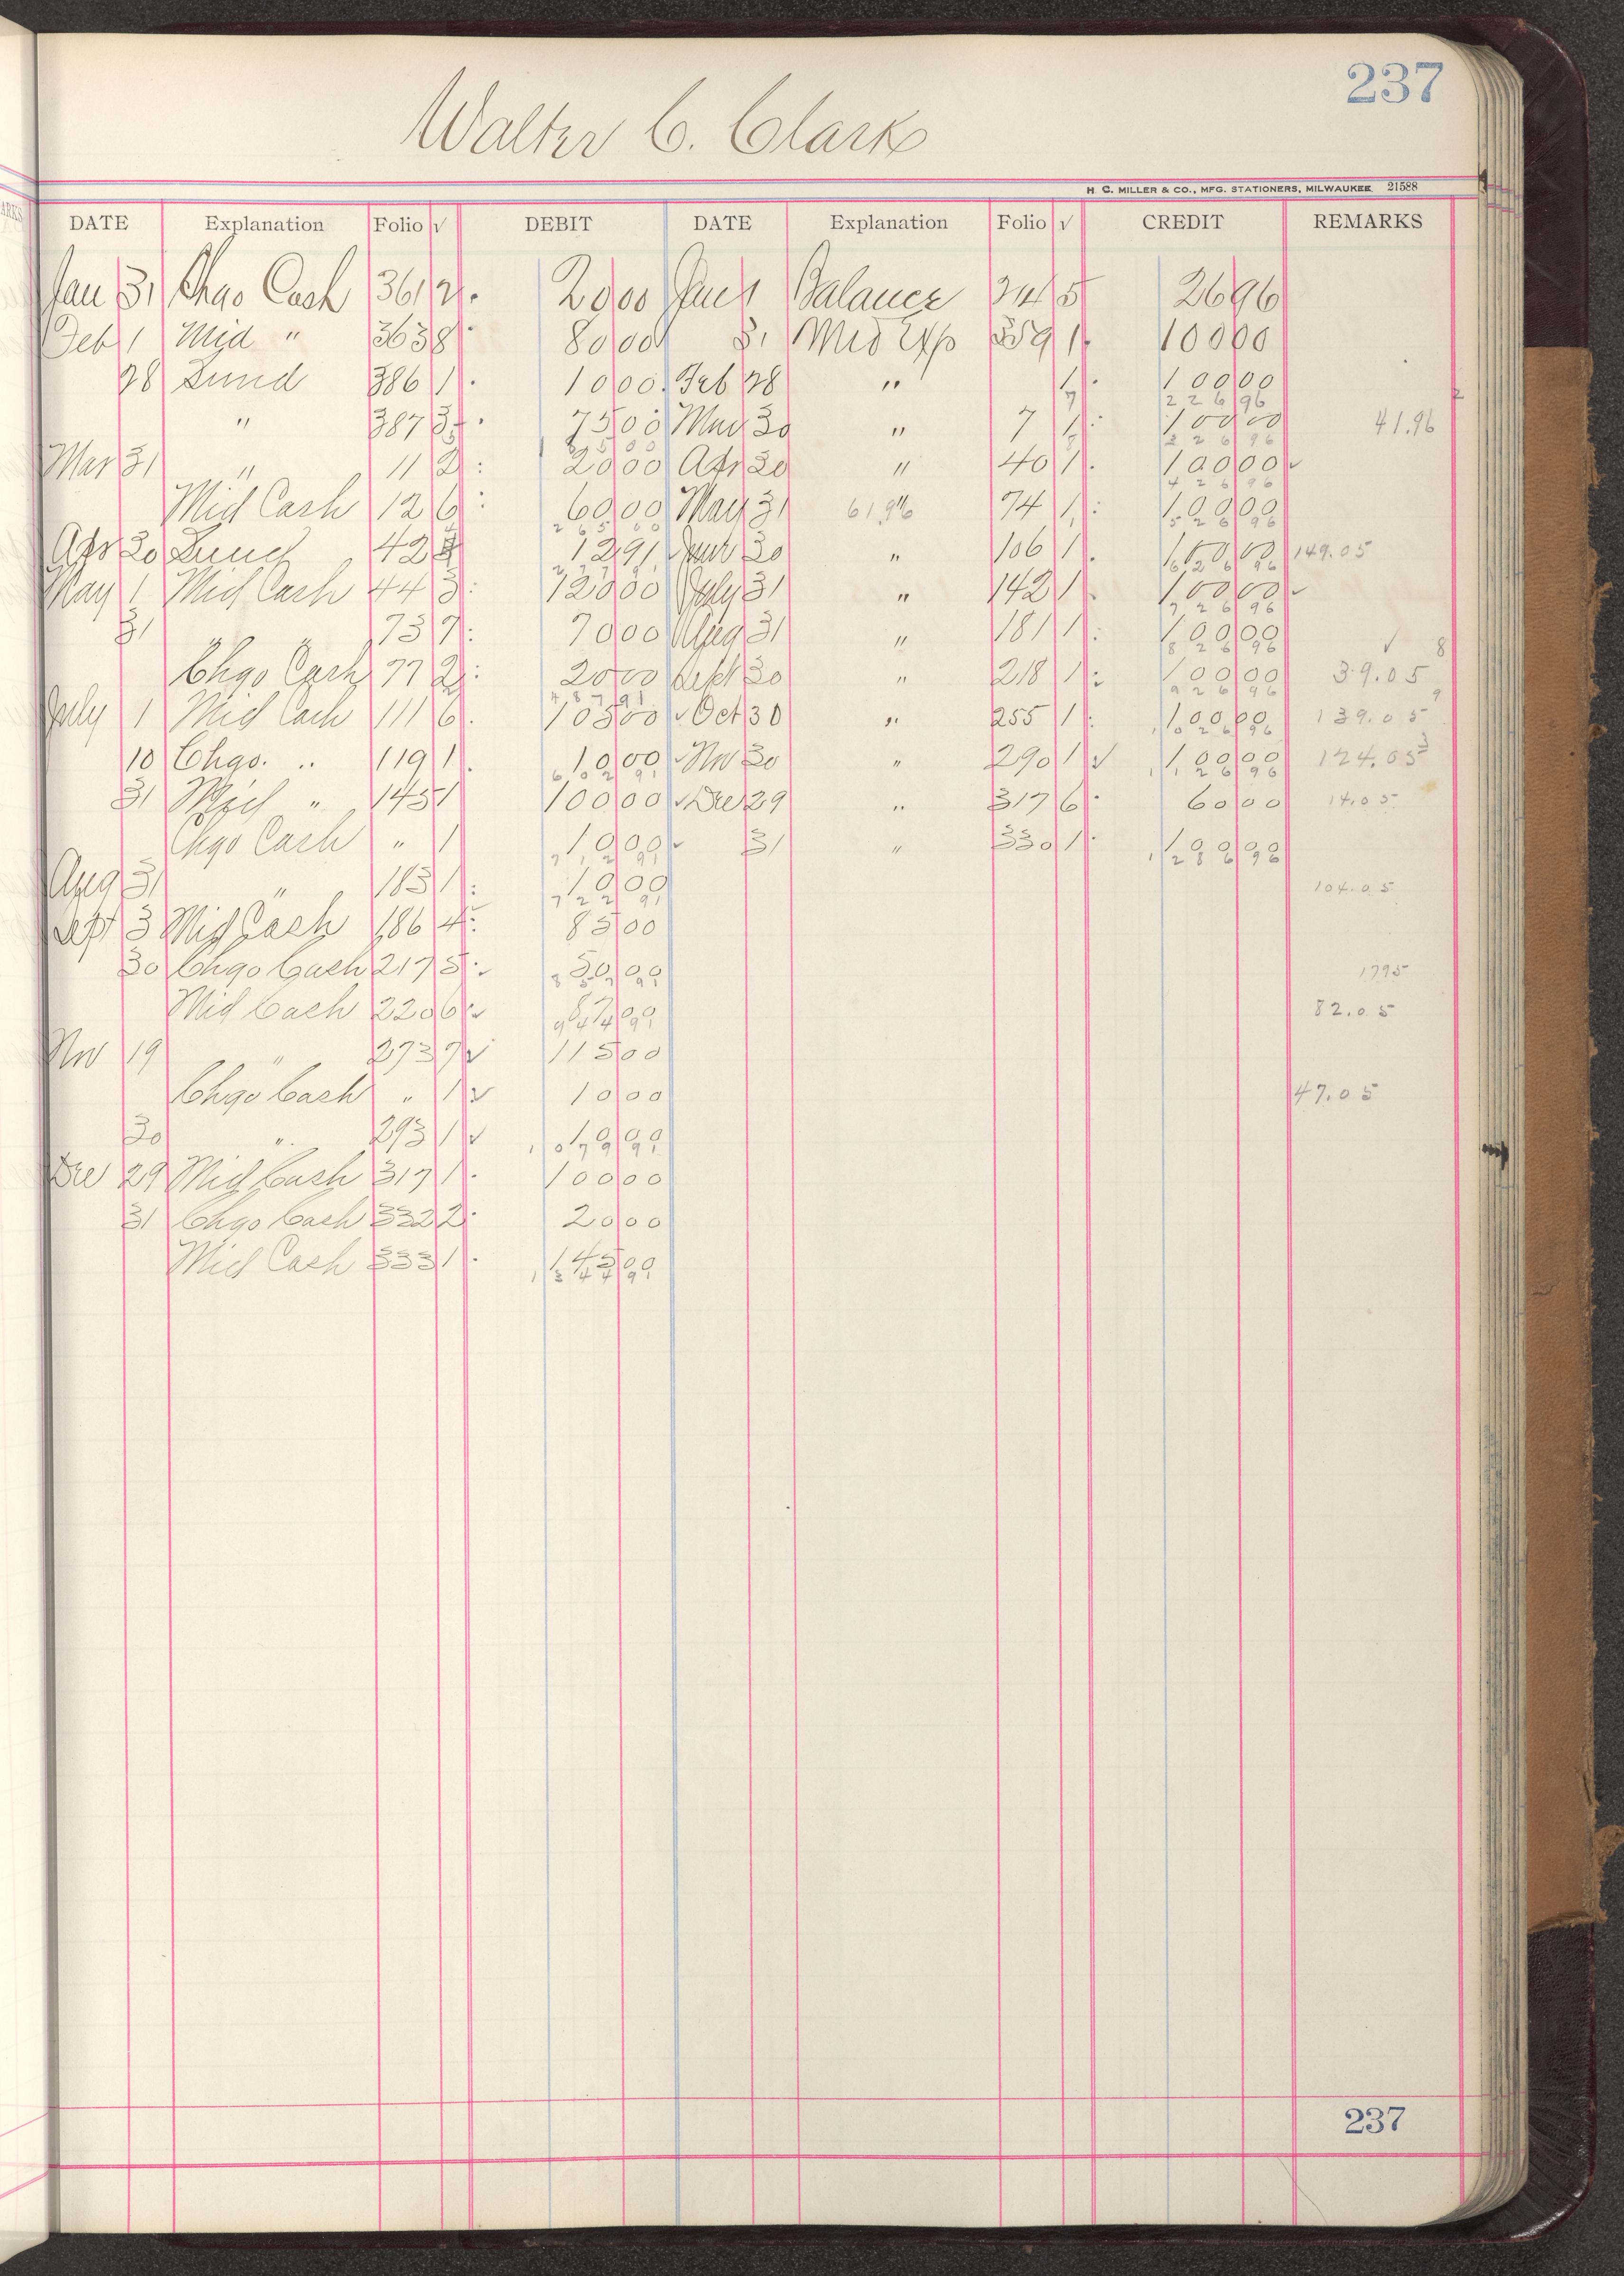 237
Walter C. Clark
H. C. MILLER & CO., MFG. STATIONERS, MILWAUKEE 21588
DATE Explanation Folio √ DEBIT DATE Explanation Folio √ CREDIT REMARKS
Jan 31 Chgo Cash 361 2 20 00 Jan 1 Balance 5 26 96
Feb 1 Mid " 363 8 80 00 31 Mid Exp 359 1 100 00
28 Lund 386 1 10 00 Feb 28 " 1 100 00
226 96
" 387 75 00 Mar 30 " 7 1 100 00 41.96
326 96
Mar 31 " 11 2 20 00 Apr 30 " 40 1 100 00
426 96
Mid Cash 12 6 60 00 May 31 61.96 74 1 100 00
265 00 526 96
Apr 30 42 12 91 June 30 " 106 1 100 00 149.05
277 91 626 96
May 1 Mid Cash 44 3 120 00 July 31 " 142 1 100 00
726 96
31 " " 73 7 70 00 Aug 31 " 181 1 100 00
826 96
Chgo Cash 77 2 20 00 Sept 30 " 218 1 100 00 39.05
487 91 926 96
July 1 Mid Cash 111 6 105 00 Oct 30 " 255 1 100 00 139.05
1026 96
10 Chgo. " 119 1 10 00 Nov 30 " 290 1 √ 100 00 124.05
602 91 1126 96
31 Mid " 145 1 100 00 Dec 29 " 317 6 60 00 14.05
Chgo Cash " 1 10 00 31 " 330 1 100 00
712 91 1286 96
Aug 31 " 183 1 10 00 104.05
722 91
Sept 3 Mid Cash 186 4 85 00
30 Chgo Cash 217 5 50 00 1795
857 91
Mid Cash 220 6 87 00 82.05
944 91
Nov 19 " 273 7 √ 115 00
Chgo Cash " 1 √ 10 00 47.05
30 " 293 1 √ 10 00
1079 91
Dec 29 Mid Cash 317 1 100 00
31 Chgo Cash 332 2 20 00
Mid Cash 333 1 145 00
1344 91
237